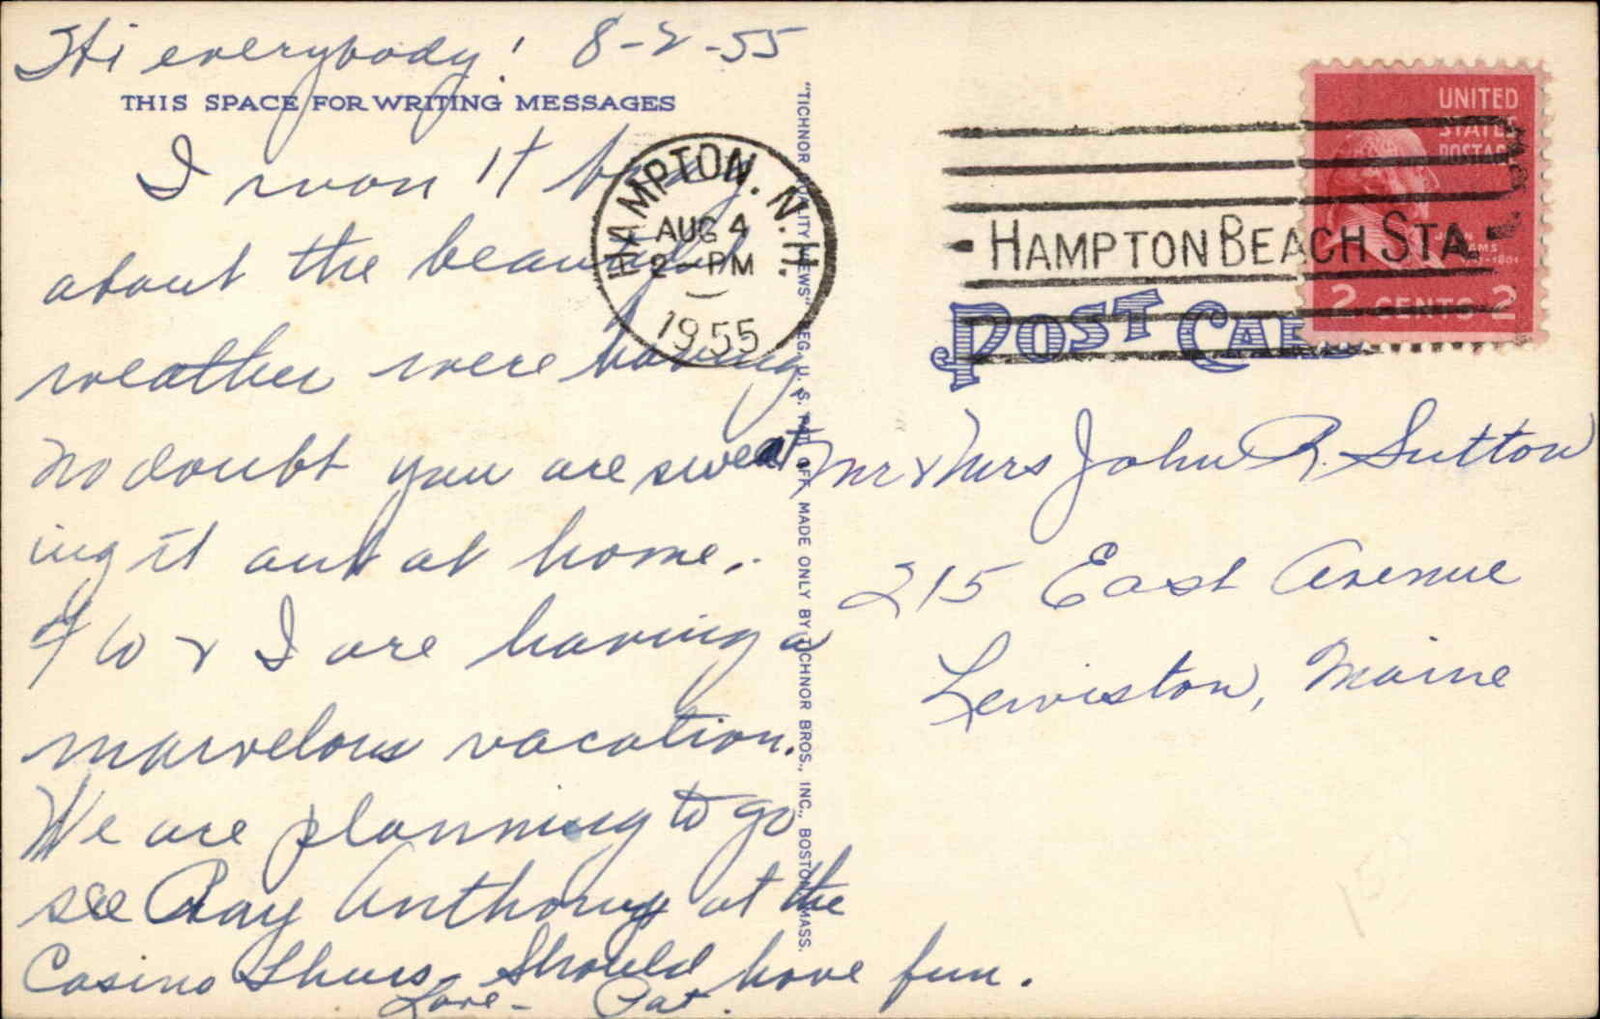 Hi everybody! 8-2-55
THIS SPACE FOR WRITING MESSAGES
I won't brag
about the beautiful
weather were having
no doubt you are sweat
ing it out at home.
& I are having a
marvelous vacation.
We are planning to go
see Ray Anthony at the
Casino Thurs. Should have fun.
Love - Pat.
"TICHNOR QUALITY VIEWS" REG. U. S. PAT. OFF. MADE ONLY BY TICHNOR BROS., INC., BOSTON, MASS.
HAMPTON. N.H.
AUG 4
2 - PM
1955
HAMPTON BEACH STA.
UNITED
STATES
POSTAGE
JOHN
ADAMS
2 CENTS 2
POST CARD
Mr & Mrs John R. Sutton
215 East Avenue
Lewiston, Maine